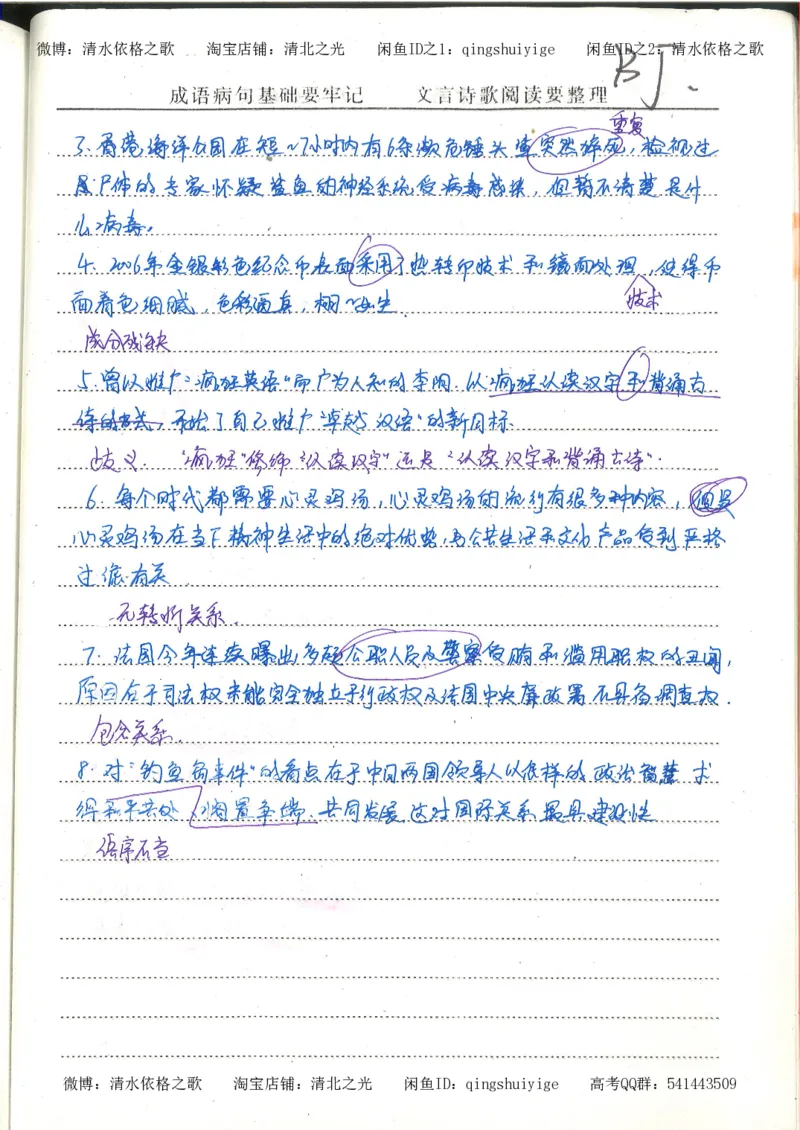 微博：清水依格之歌 淘宝店铺：清北之光 闲鱼ID之1：qingshuiyige 闲鱼ID之2：清水依格之歌
BJ.
成语病句基础要牢记 文言诗歌阅读要整理
重复
3、香港海洋公园在短~7小时内有6条濒危锤头鲨突然猝死，检视过
鲨尸体的专家怀疑鲨鱼的神经系统受病毒感染，但暂不清楚是什
么病毒。
4、2006年金银彩色纪念币表面采用了热转印技术和镜面处理，使得币
技术
面着色细腻，色彩逼真，栩~如生
成分残缺
5、曾以推广"疯狂英语"而广为人知的李阳，以"疯狂认读汉字和背诵古
诗的方式，开始了自己推广"卓越汉语"的新目标
歧义. "疯狂"修饰"认读汉字"还是"认读汉字和背诵古诗".
6、每个时代都需要心灵鸡汤，心灵鸡汤的流行有很多种内容，但是
心灵鸡汤在当下精神生活中的绝对优势，与公共生活和文化产品受到严格
过滤有关
无转折关系.
7、法国今年连续曝出多起公职人员及警察受贿和滥用职权的丑闻，
原因在于司法权未能完全独立于行政权及法国中央廉政署不具备调查权.
包含关系.
8、对"钓鱼岛事件"的看点在于中日两国领导人以怎样的政治智慧求
得和平共处、搁置争端、共同发展，这对国际关系最具建设性
语序不当
微博：清水依格之歌 淘宝店铺：清北之光 闲鱼ID：qingshuiyige 高考QQ群：541443509